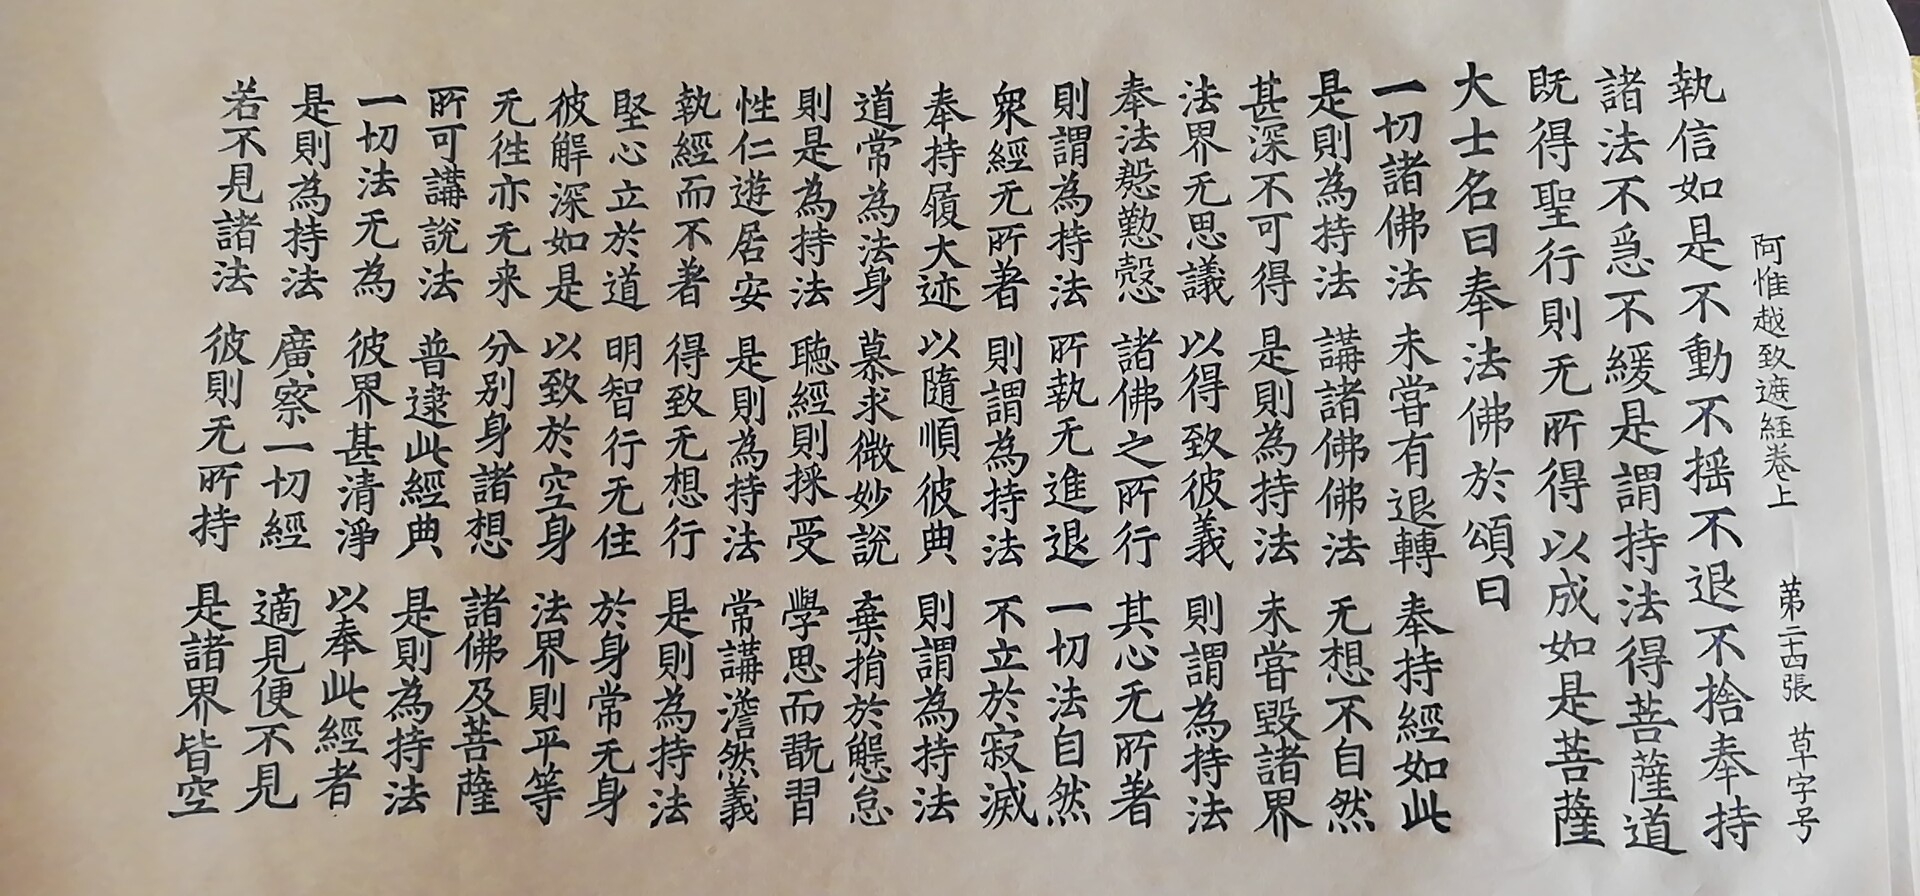 阿惟越致遮経卷上　第二十四張　草字号
執信如是不動不摇不退不捨奉持
諸法不急不緩是謂持法得菩薩道
既得聖行則无所得以成如是菩薩
大士名曰奉法佛於頌曰
一切諸佛法　未嘗有退轉　奉持經如此
是則為持法　講諸佛佛法　无想不自然
甚深不可得　是則為持法　未嘗毀諸界
法界无思議　以得致彼義　則謂為持法
奉法慇懃慤　諸佛之所行　其心无所著
則謂為持法　所執无進退　一切法自然
衆經无所著　則謂為持法　不立於寂滅
奉持履大迹　以隨順彼典　則謂為持法
道常為法身　慕求微妙說　棄捐於懈怠
則是為持法　聴經則採受　學思而翫習
性仁遊居安　是則為持法　常講澹然義
執經而不著　得致无想行　是則為持法
堅心立於道　明智行无住　於身常无身
彼解深如是　以致於空身　法界則平等
无徃亦无来　分別身諸想　諸佛及菩薩
所可講說法　普逮此經典　是則為持法
一切法无為　彼界甚清淨　以奉此經者
是則為持法　廣察一切經　適見便不見
若不見諸法　彼則无所持　是諸界皆空